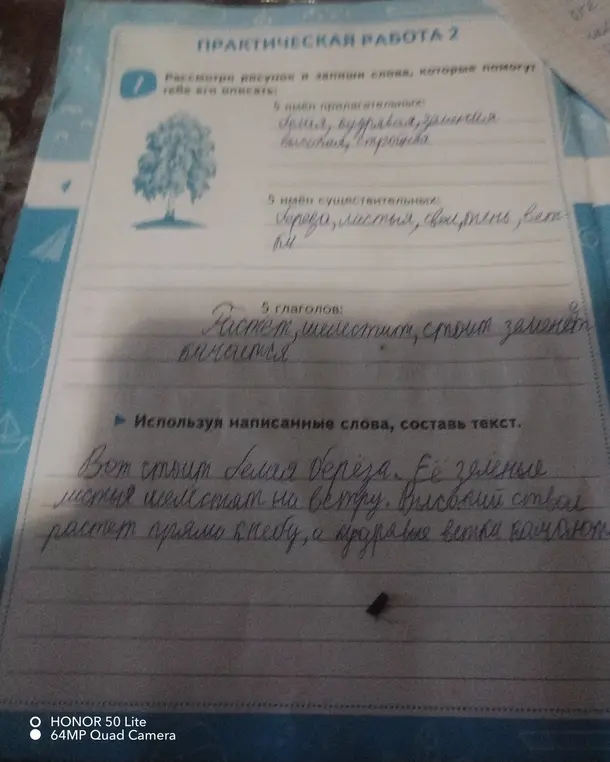 ПРАКТИЧЕСКАЯ РАБОТА 2
1 Рассмотри рисунок и запиши слова, которые помогут
тебе его описать:
5 имён прилагательных:
белая, кудрявая, зелёная
высокая, стройная
5 имён существительных:
береза, листья, ствол, тень, вет-
ки
5 глаголов:
Растет, шелестит, стоит зеленеет
качается
Используя написанные слова, составь текст.
Вот стоит белая берёза. Её зелёные
листья шелестят на ветру. Высокий ствол
растет прямо к небу, а кудрявые ветки качают
HONOR 50 Lite
64MP Quad Camera